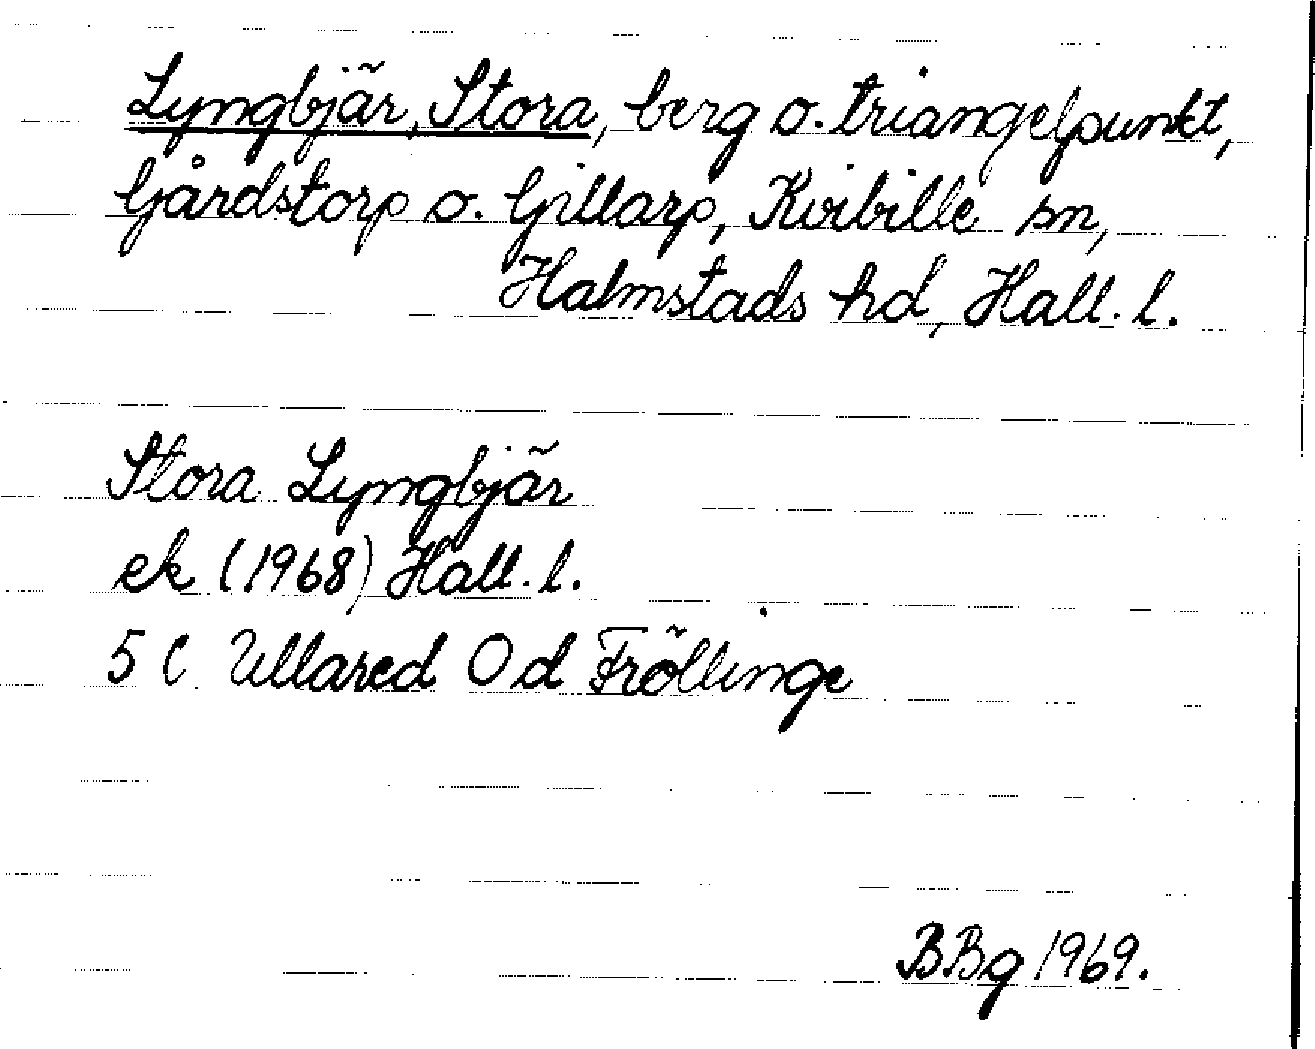 Lyngbjär, Stora, berg o. triangelpunkt,
Gårdstorp o. Gillarp, Kvibille sn,
Halmstads hd, Hall. l.
Stora Lyngbjär
ek (1968) Hall. l.
5 C Ullared O d Fröllinge
BBg 1969.